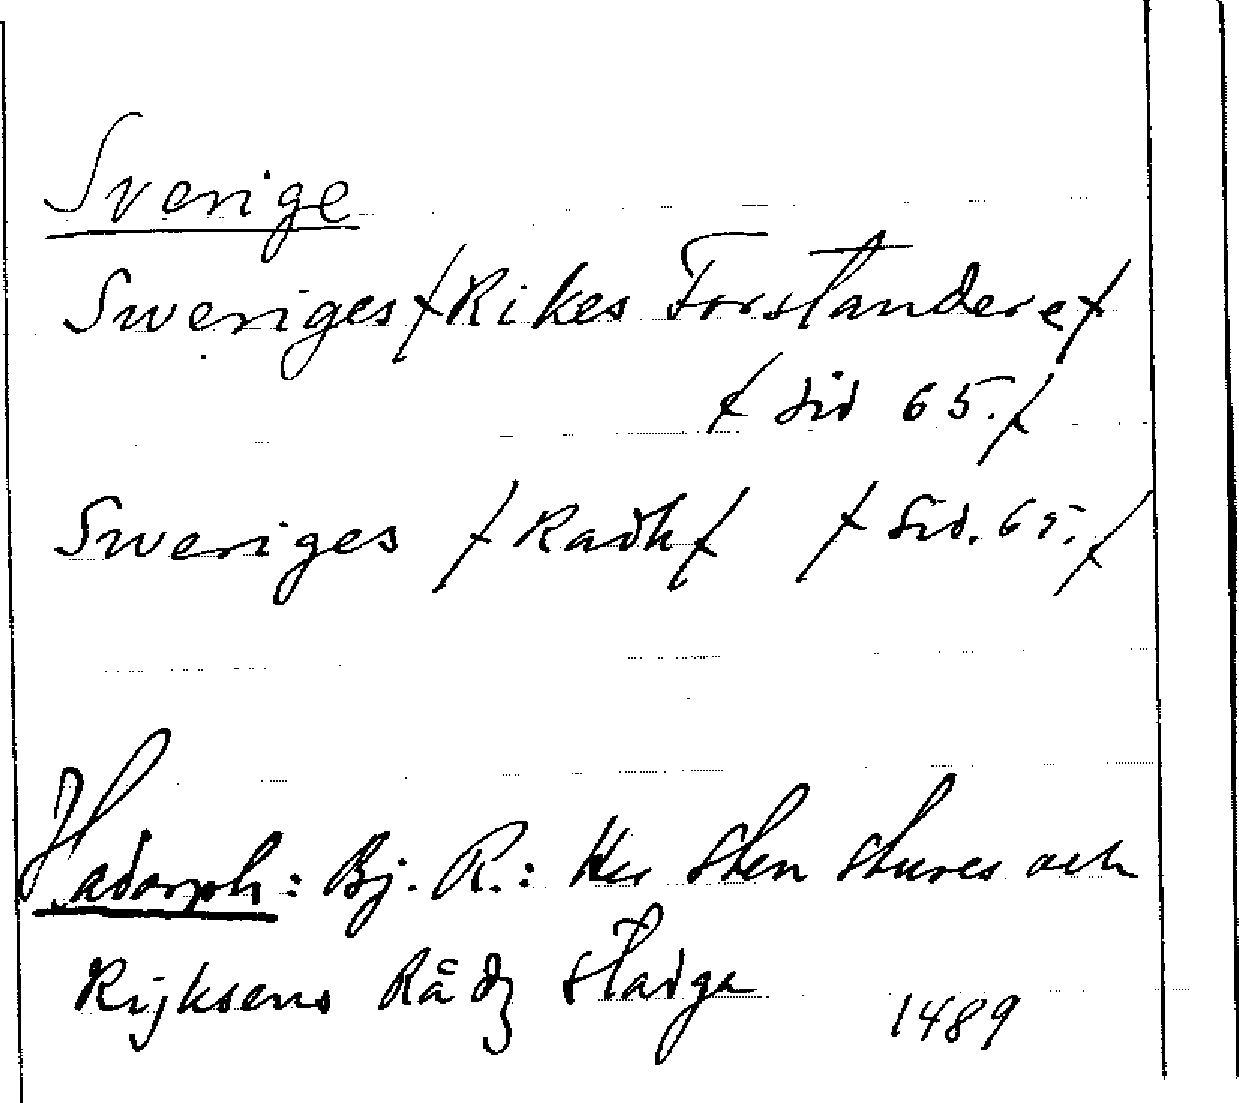 Sverige
Sweriges /Rikes Forstandere/
/ sid 65./
Sweriges / Radh / / Sid. 65./
Hadorph: Bj. R.: Her Sten Stures och
Rijksens Rådz Stadga 1489